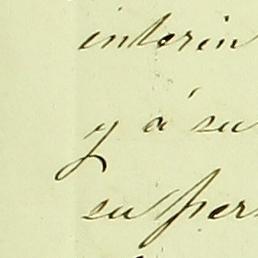 interin
y á su
su per